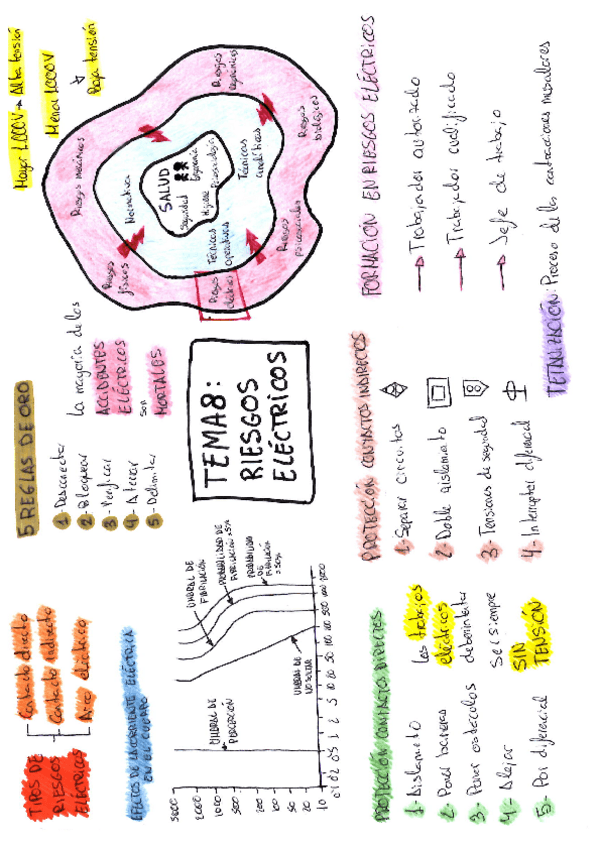 TIPOS DE
RIESGOS
ELÉCTRICOS
Contacto directo
Contacto indirecto
Arco eléctrico
5 REGLAS DE ORO
1- Desconectar
2- Bloquear
3- Verificar
4- Aterrar
5- Delimitar
La mayoría de los
ACCIDENTES
ELÉCTRICOS
SON
MORTALES
Mayor 1.000V → Alta tensión
Menor 1.000V
Baja tensión
Riesgos mecánicos
Riesgos higiénicos
Riesgos
físicos
Riesgos
biológicos
Riesgos
eléctricos
Riesgos
psicosociales
Normativa
Técnicas
analíticas
Técnicas
operativas
SALUD
Seguridad
Higiene
Ergonomía
Psicosociología
EFECTOS DE LA CORRIENTE ELÉCTRICA
EN EL CUERPO
UMBRAL DE
PERCEPCIÓN
UMBRAL DE
NO SOLTAR
UMBRAL DE
FIBRILACIÓN
PROBABILIDAD DE
FIBRILACIÓN >5%
PROBABILIDAD
DE
FIBRILACIÓN
>50%
5000
2000
1000
500
200
100
50
20
10
0'1 0'2 0'5 1 2 5 10 20 50 100 200 500 1000 2000
TEMA 8:
RIESGOS
ELÉCTRICOS
PROTECCIÓN CONTACTOS DIRECTOS
1- Aislamiento
2- Poner barreras
3- Poner obstáculos
4- Alejar
5- Por diferencial
Los trabajos
eléctricos
deberían
ser siempre
SIN
TENSIÓN
PROTECCIÓN CONTACTOS INDIRECTOS
1- Separar circuitos
2- Doble aislamiento
3- Tensiones de seguridad
4- Interruptor diferencial
FORMACIÓN EN RIESGOS ELÉCTRICOS
→ Trabajador autorizado
→ Trabajador cualificado
→ Jefe de trabajo
TETANIZACIÓN: Proceso de las contracciones musculares